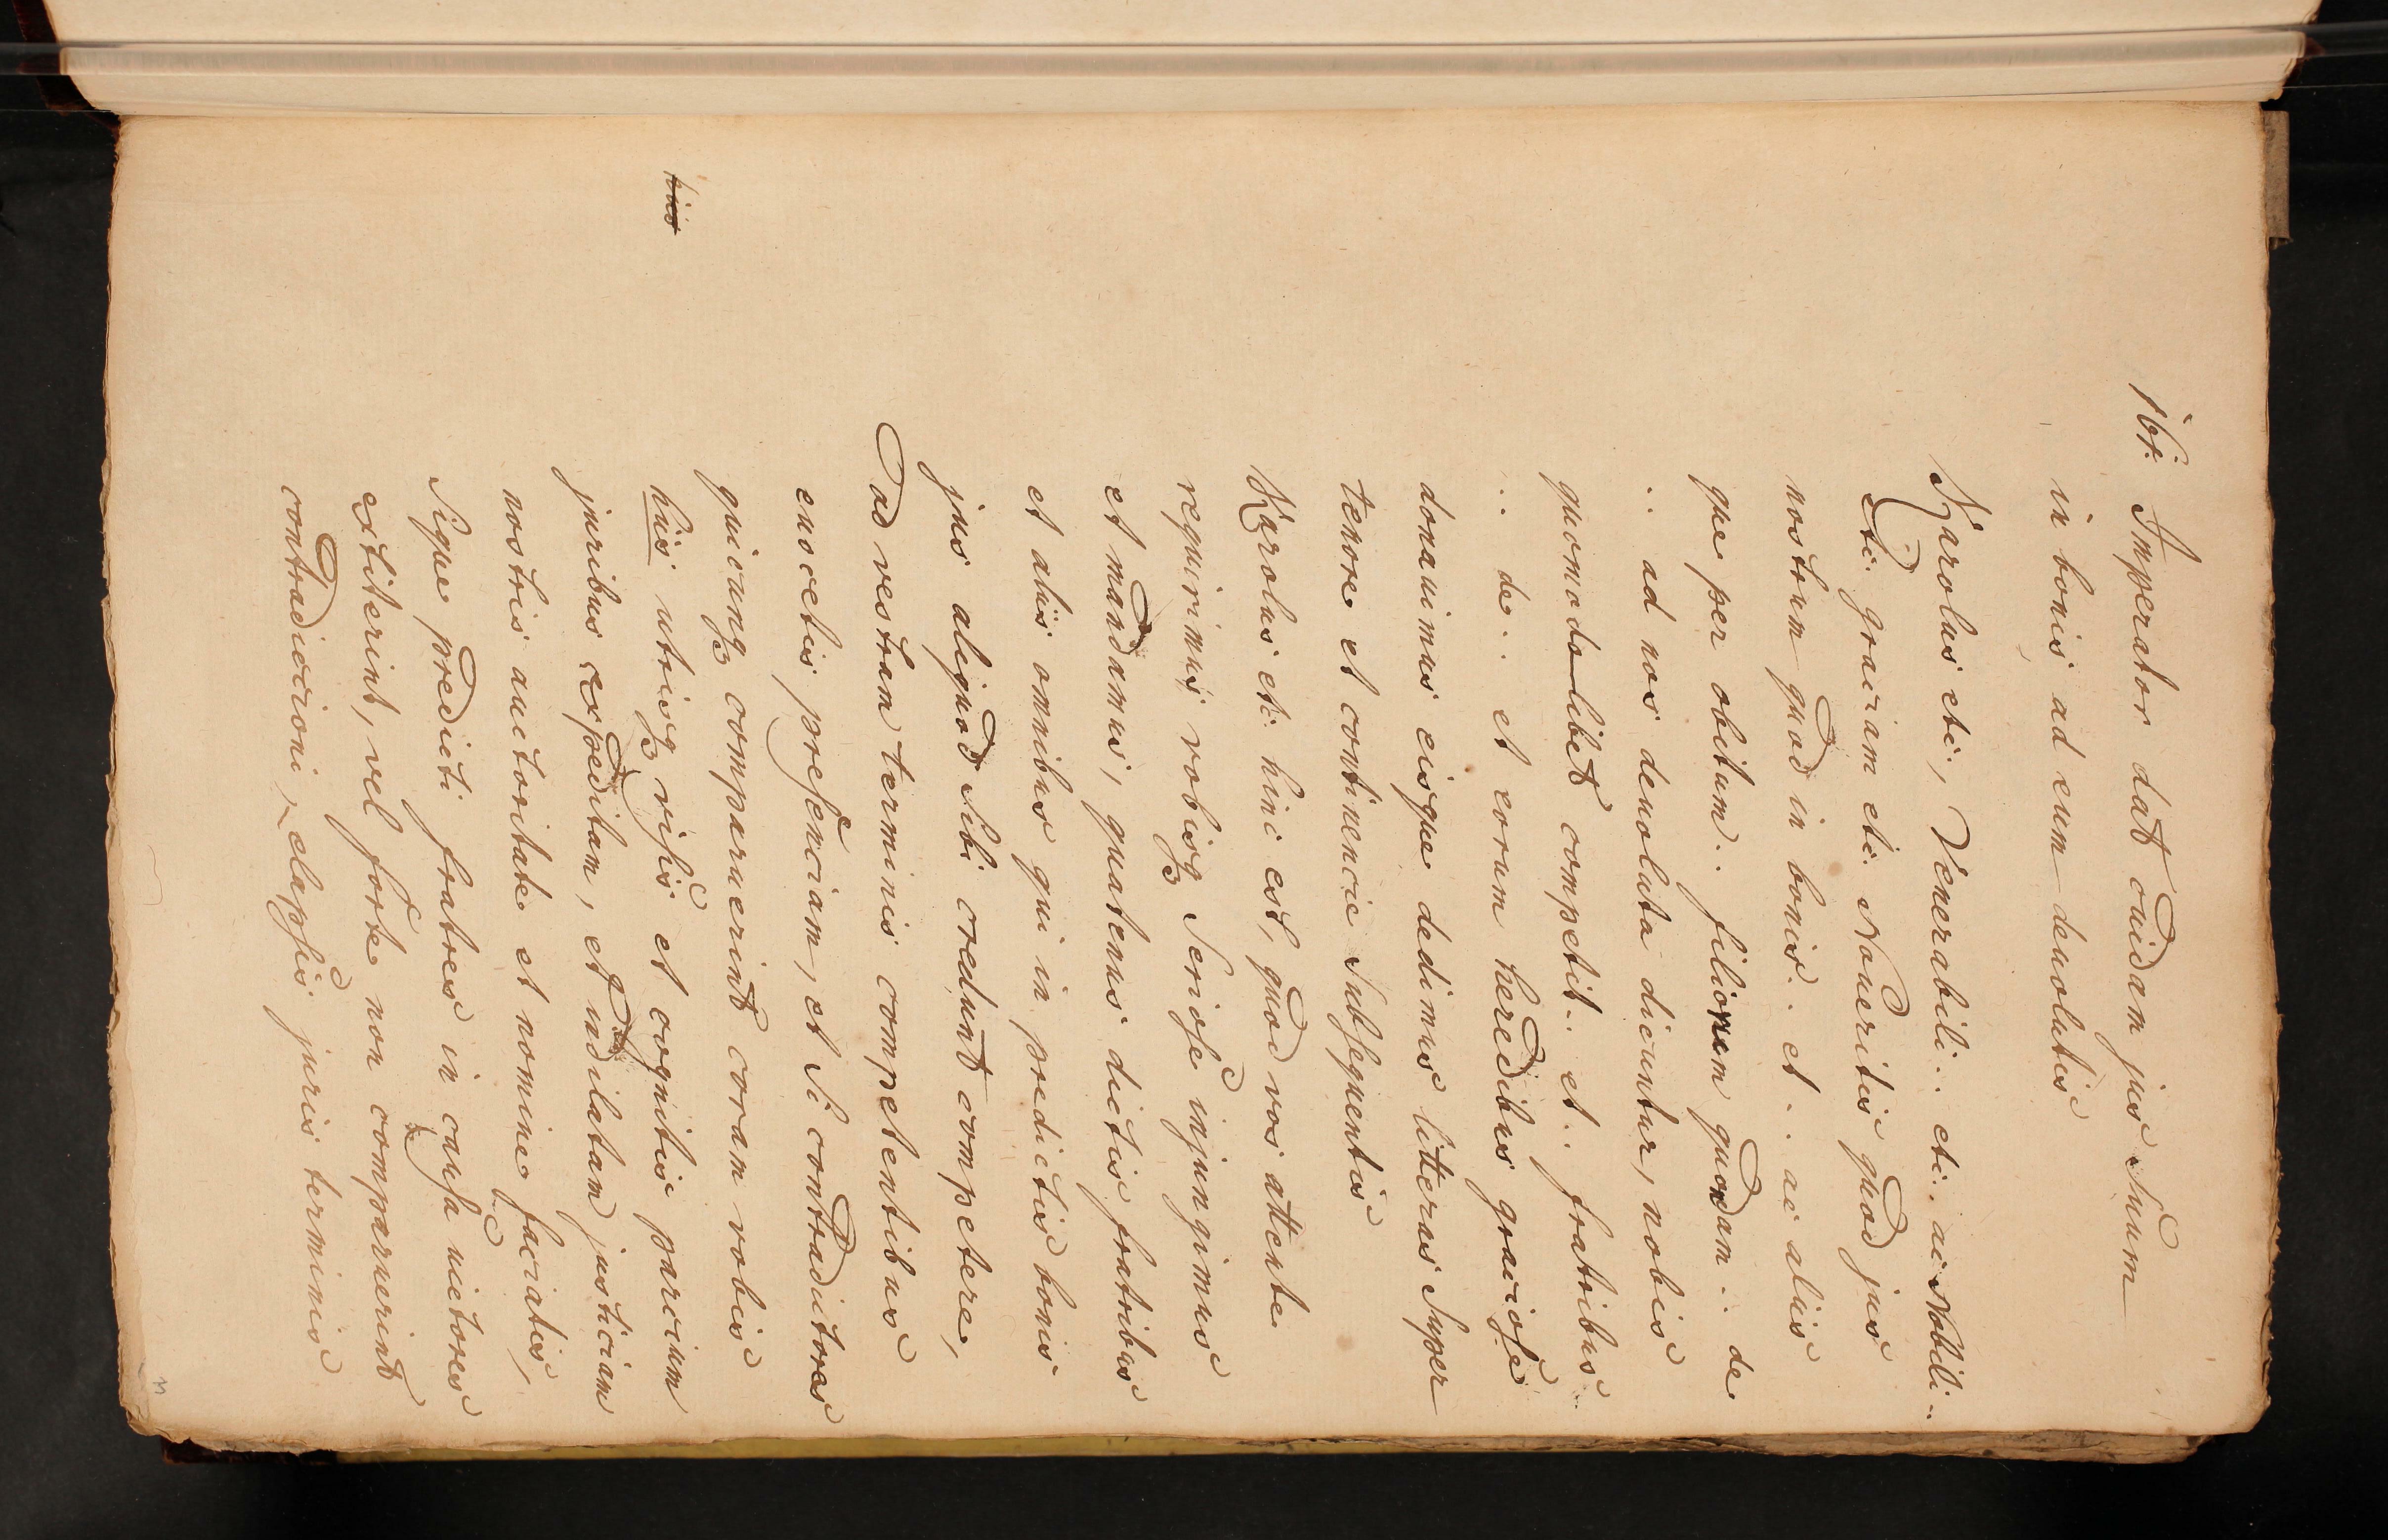 161. Imperator dat cuidam jus Suum
in bonis ad eum deuolutis
Karolus etc, Venerabili.. etc. ac Nobili..
etc. graciam etc. Noueritis quod jus
nostrum quod in bonis.. et.. ac aliis
que per obitum.. filiorum quondam.. de
.. ad nos deuoluta dicuntur, nobis
quomodolibet competit.. et.. fratribus..
.. de.. et eorum heredibus graciose
donauimus eisque dedimus litteras Super
tenore et continencie Subsequentis
Karolus etc. hinc est, quod vos attente
requirimus vobisq3 Seriose injungimus
et mandamus, quatenus dictis fratribus
et aliis omnibus qui in predictis bonis
jus aliquod Sibi credunt competere,
ad vestram terminis competentibus
euocetis presenciam, et Si contradictores
quicunq3 comparuerint coram vobis
hiis
huis utriusq3 visis et cognitis parcium
juribus expeditam, et indilatam justiciam
nostris auctoritate et nomine faciatis,
Sique predicti fratres in causa victores
extiterint, vel forte non comparuerint
contradictioni, elapsis juris terminis